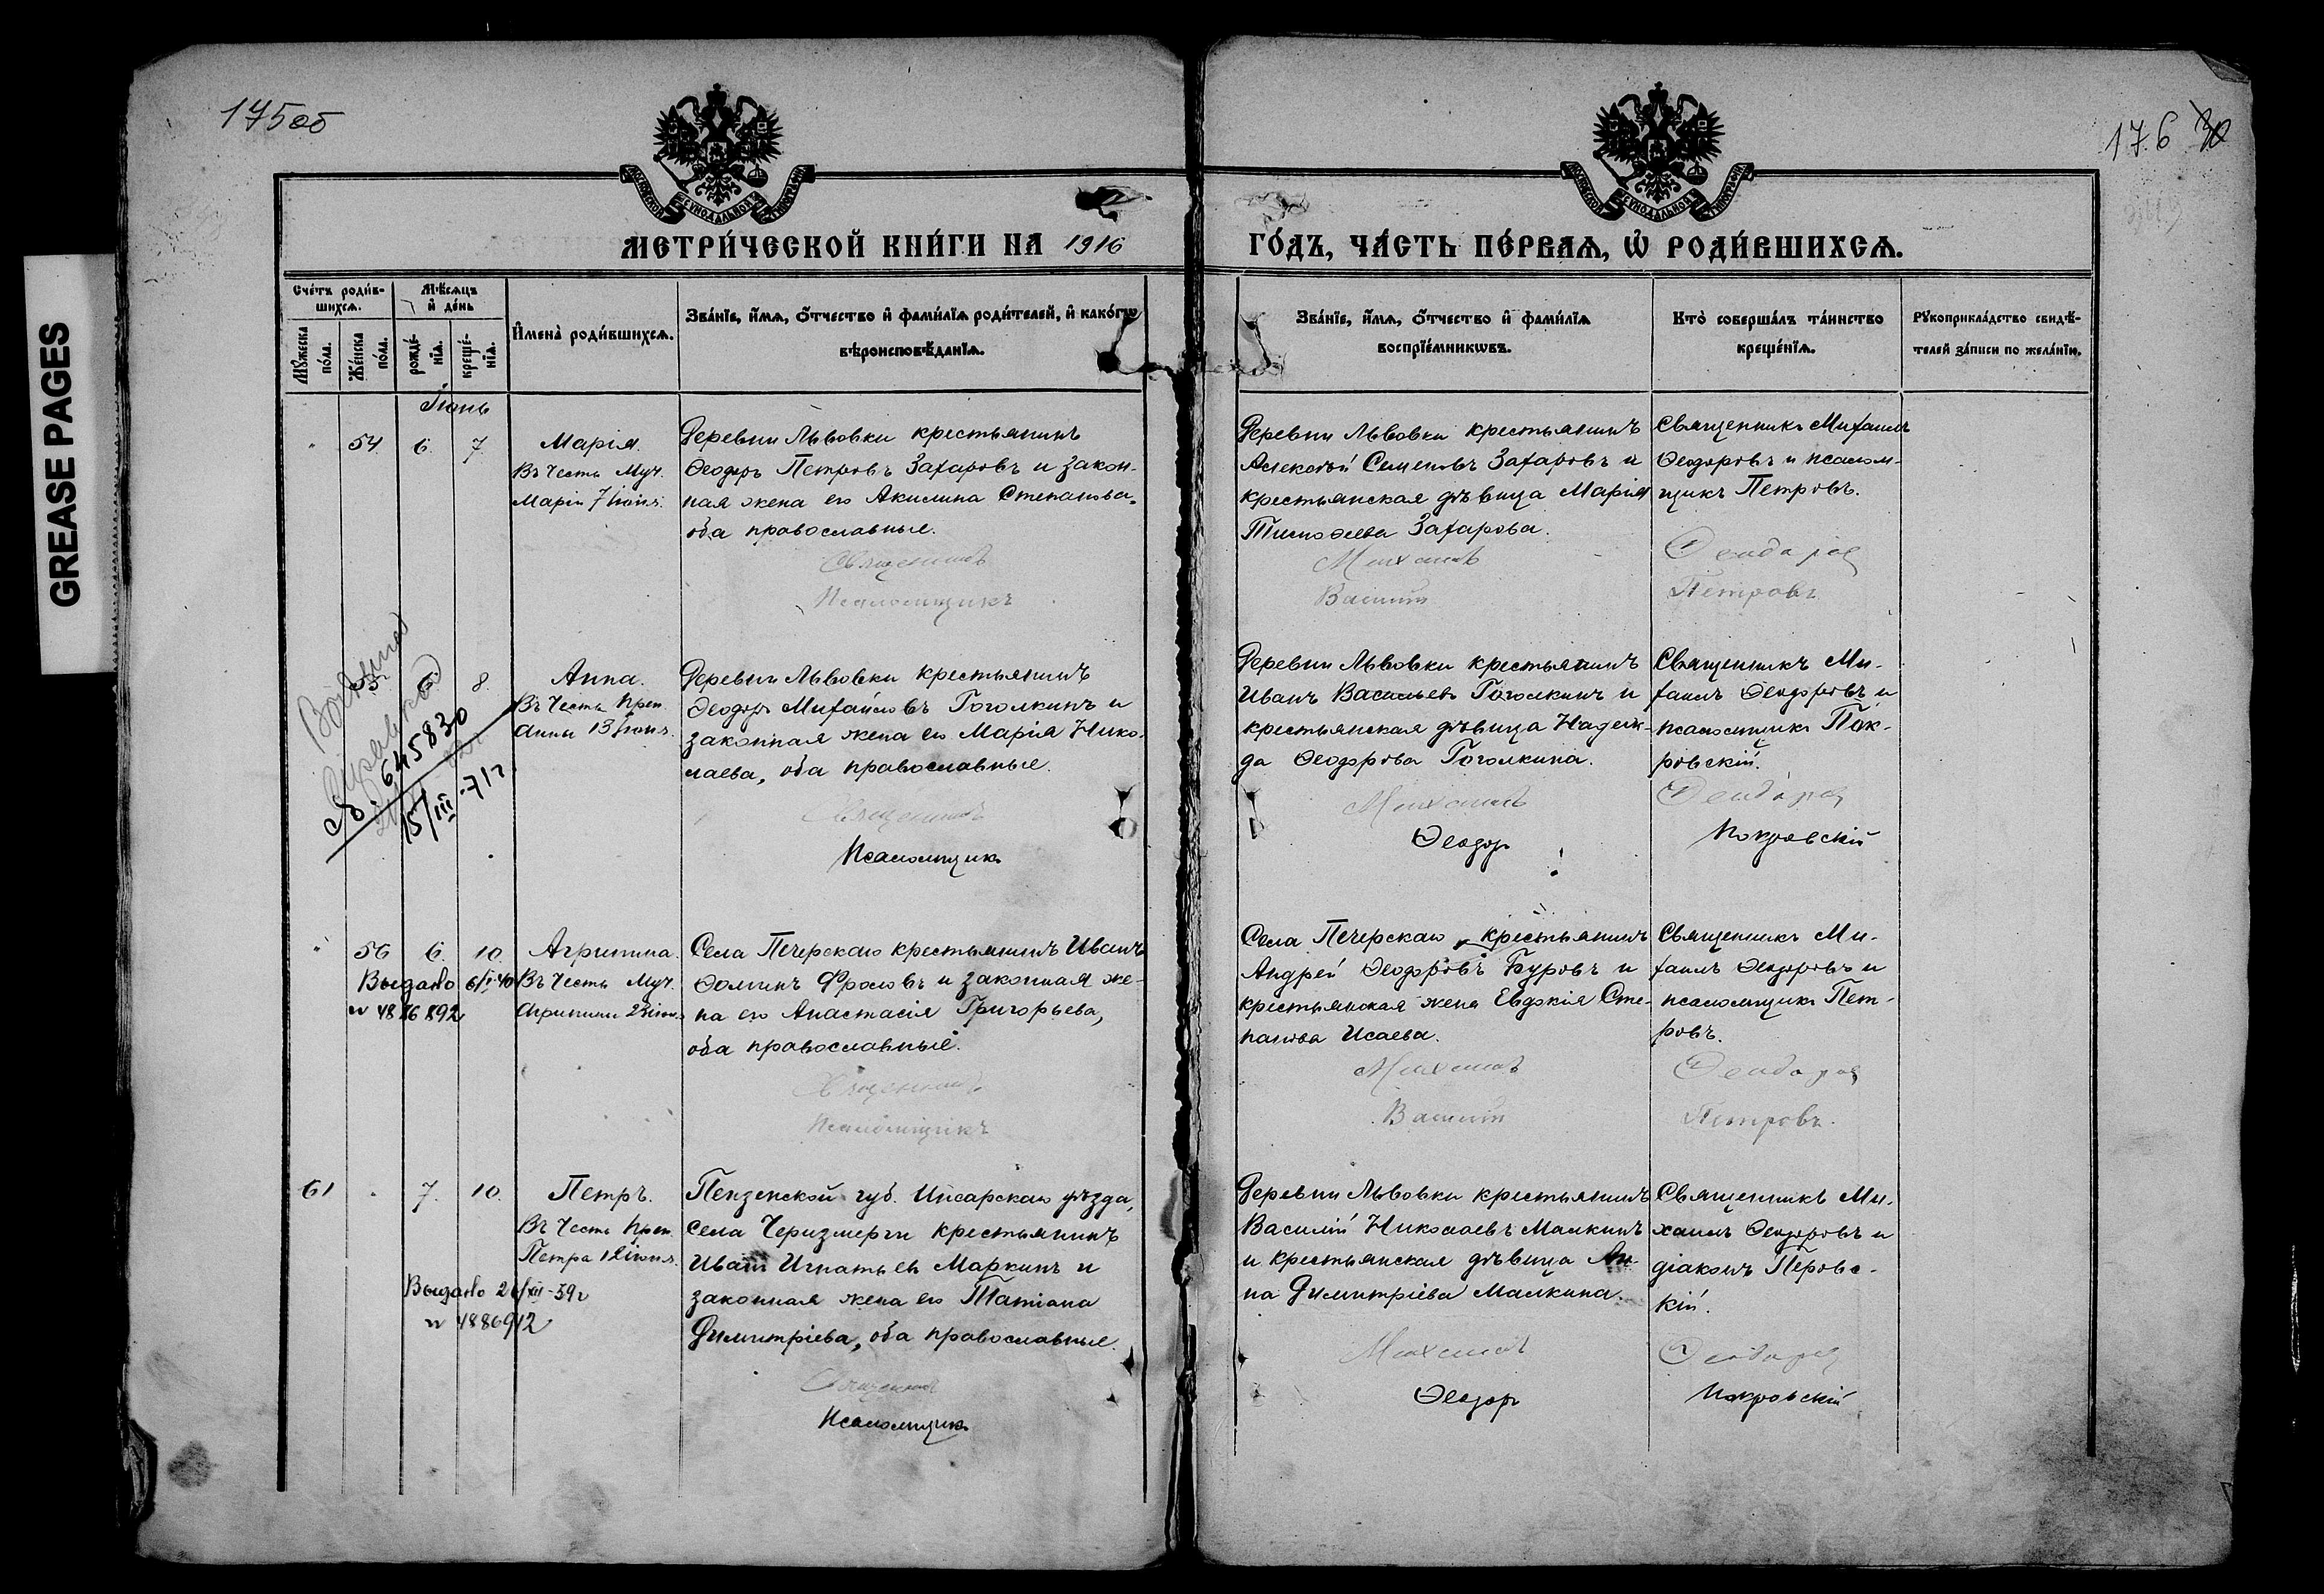 175об
176
GREASE PAGES
МОСКОВСКОЙ СѴНОДАЛЬНОЙ ТИПОГРАФІИ
МОСКОВСКОЙ СѴНОДАЛЬНОЙ ТИПОГРАФІИ
МЕТРИ́ЧЕСКОЙ КНИ́ГИ НА 1916
ГО́ДЪ, ЧА́СТЬ ПЕ́РВАѦ, Ѡ҆ РОДИ́ВШИХСѦ.
Сче́тъ роди́в-
шихсѧ.
Мѣ́сѧцъ
и҆ де́нь
Мꙋ́жеска
по́ла.
Же́нска
по́ла.
рожде́-
нїѧ.
креще́-
нїѧ.
И҆мена̀ роди́вшихсѧ.
Зва́нїе, и҆́мѧ, ѻ҆́тчество и҆ фами́лїѧ роди́телей, и҆ како́гѡ
вѣроисповѣ́данїѧ.
Зва́нїе, и҆́мѧ, ѻ҆́тчество и҆ фами́лїѧ
воспрїе́мникѡвъ.
Кто̀ соверша́лъ та́инство
креще́нїѧ.
Рꙋкоприкла́дство свидѣ́-
телей за́писи по жела́нїю.
Іюнь
54 6. 7
Марія.
Въ честь Муч.
Маріи 7 іюня.
Деревни Львовки крестьянинъ
Ѳеодоръ Петровъ Захаровъ и закон-
ная жена его Акилина Степанова,
оба православные.
Священникъ
Псаломщикъ
Деревни Львовки крестьянинъ
Алексѣй Семеновъ Захаровъ и
крестьянская дѣвица Марія
Тимоѳеева Захарова.
Михаилъ
Василій
Священникъ Михаилъ
Ѳеодоровъ и псалом-
щикъ Петровъ.
Ѳеодоровъ
Петровъ
55 6. 8.
645830
15/III-71г.
Анна.
Въ честь Преп.
Анны 13 іюня.
Деревни Львовки крестьянинъ
Ѳеодоръ Михайловъ Гоголкинъ и
законная жена его Марія Нико-
лаева, оба православные.
Священникъ
Псаломщикъ
Деревни Львовки крестьянинъ
Иванъ Васильевъ Гоголкинъ и
крестьянская дѣвица Надеж-
да Ѳеодорова Гоголкина.
Михаилъ
Ѳеодоръ
Священникъ Ми-
хаилъ Ѳеодоровъ и
псаломщикъ Пок-
ровскій.
Ѳеодоровъ
Покровскій
56 6. 10.
Выдано 6/I-40
№ 4886892
Агрипина.
Въ честь Муч.
Агрипины 23 іюн.
Села Печерскаго крестьянинъ Иванъ
Ѳоминъ Фроловъ и законная же-
на его Анастасія Григорьева,
оба православные.
Священникъ
Псаломщикъ
Села Печерскаго крестьянинъ
Андрей Ѳеодоровъ Буровъ и
крестьянская жена Евдокія Сте-
панова Исаева.
Михаилъ
Василій
Священникъ Ми-
хаилъ Ѳеодоровъ и
псаломщикъ Пет-
ровъ.
Ѳеодоровъ
Петровъ.
61 7. 10.
Петръ.
Въ честь Преп.
Петра 12 іюня.
Выдано 26/XII-39г
№ 4886912
Пензенской губ. Инсарскаго уѣзда,
села Черизмерги крестьянинъ
Иванъ Игнатьевъ Маркинъ и
законная жена его Татіана
Димитріева, оба православные.
Священникъ
Псаломщикъ
Деревни Львовки крестьянинъ
Василій Николаевъ Малкинъ
и крестьянская дѣвица Ан-
на Димитріева Малкина.
Михаилъ
Ѳеодоръ
Священникъ Ми-
хаилъ Ѳеодоровъ и
діаконъ Перовс-
кій.
Ѳеодоровъ
Покровскій